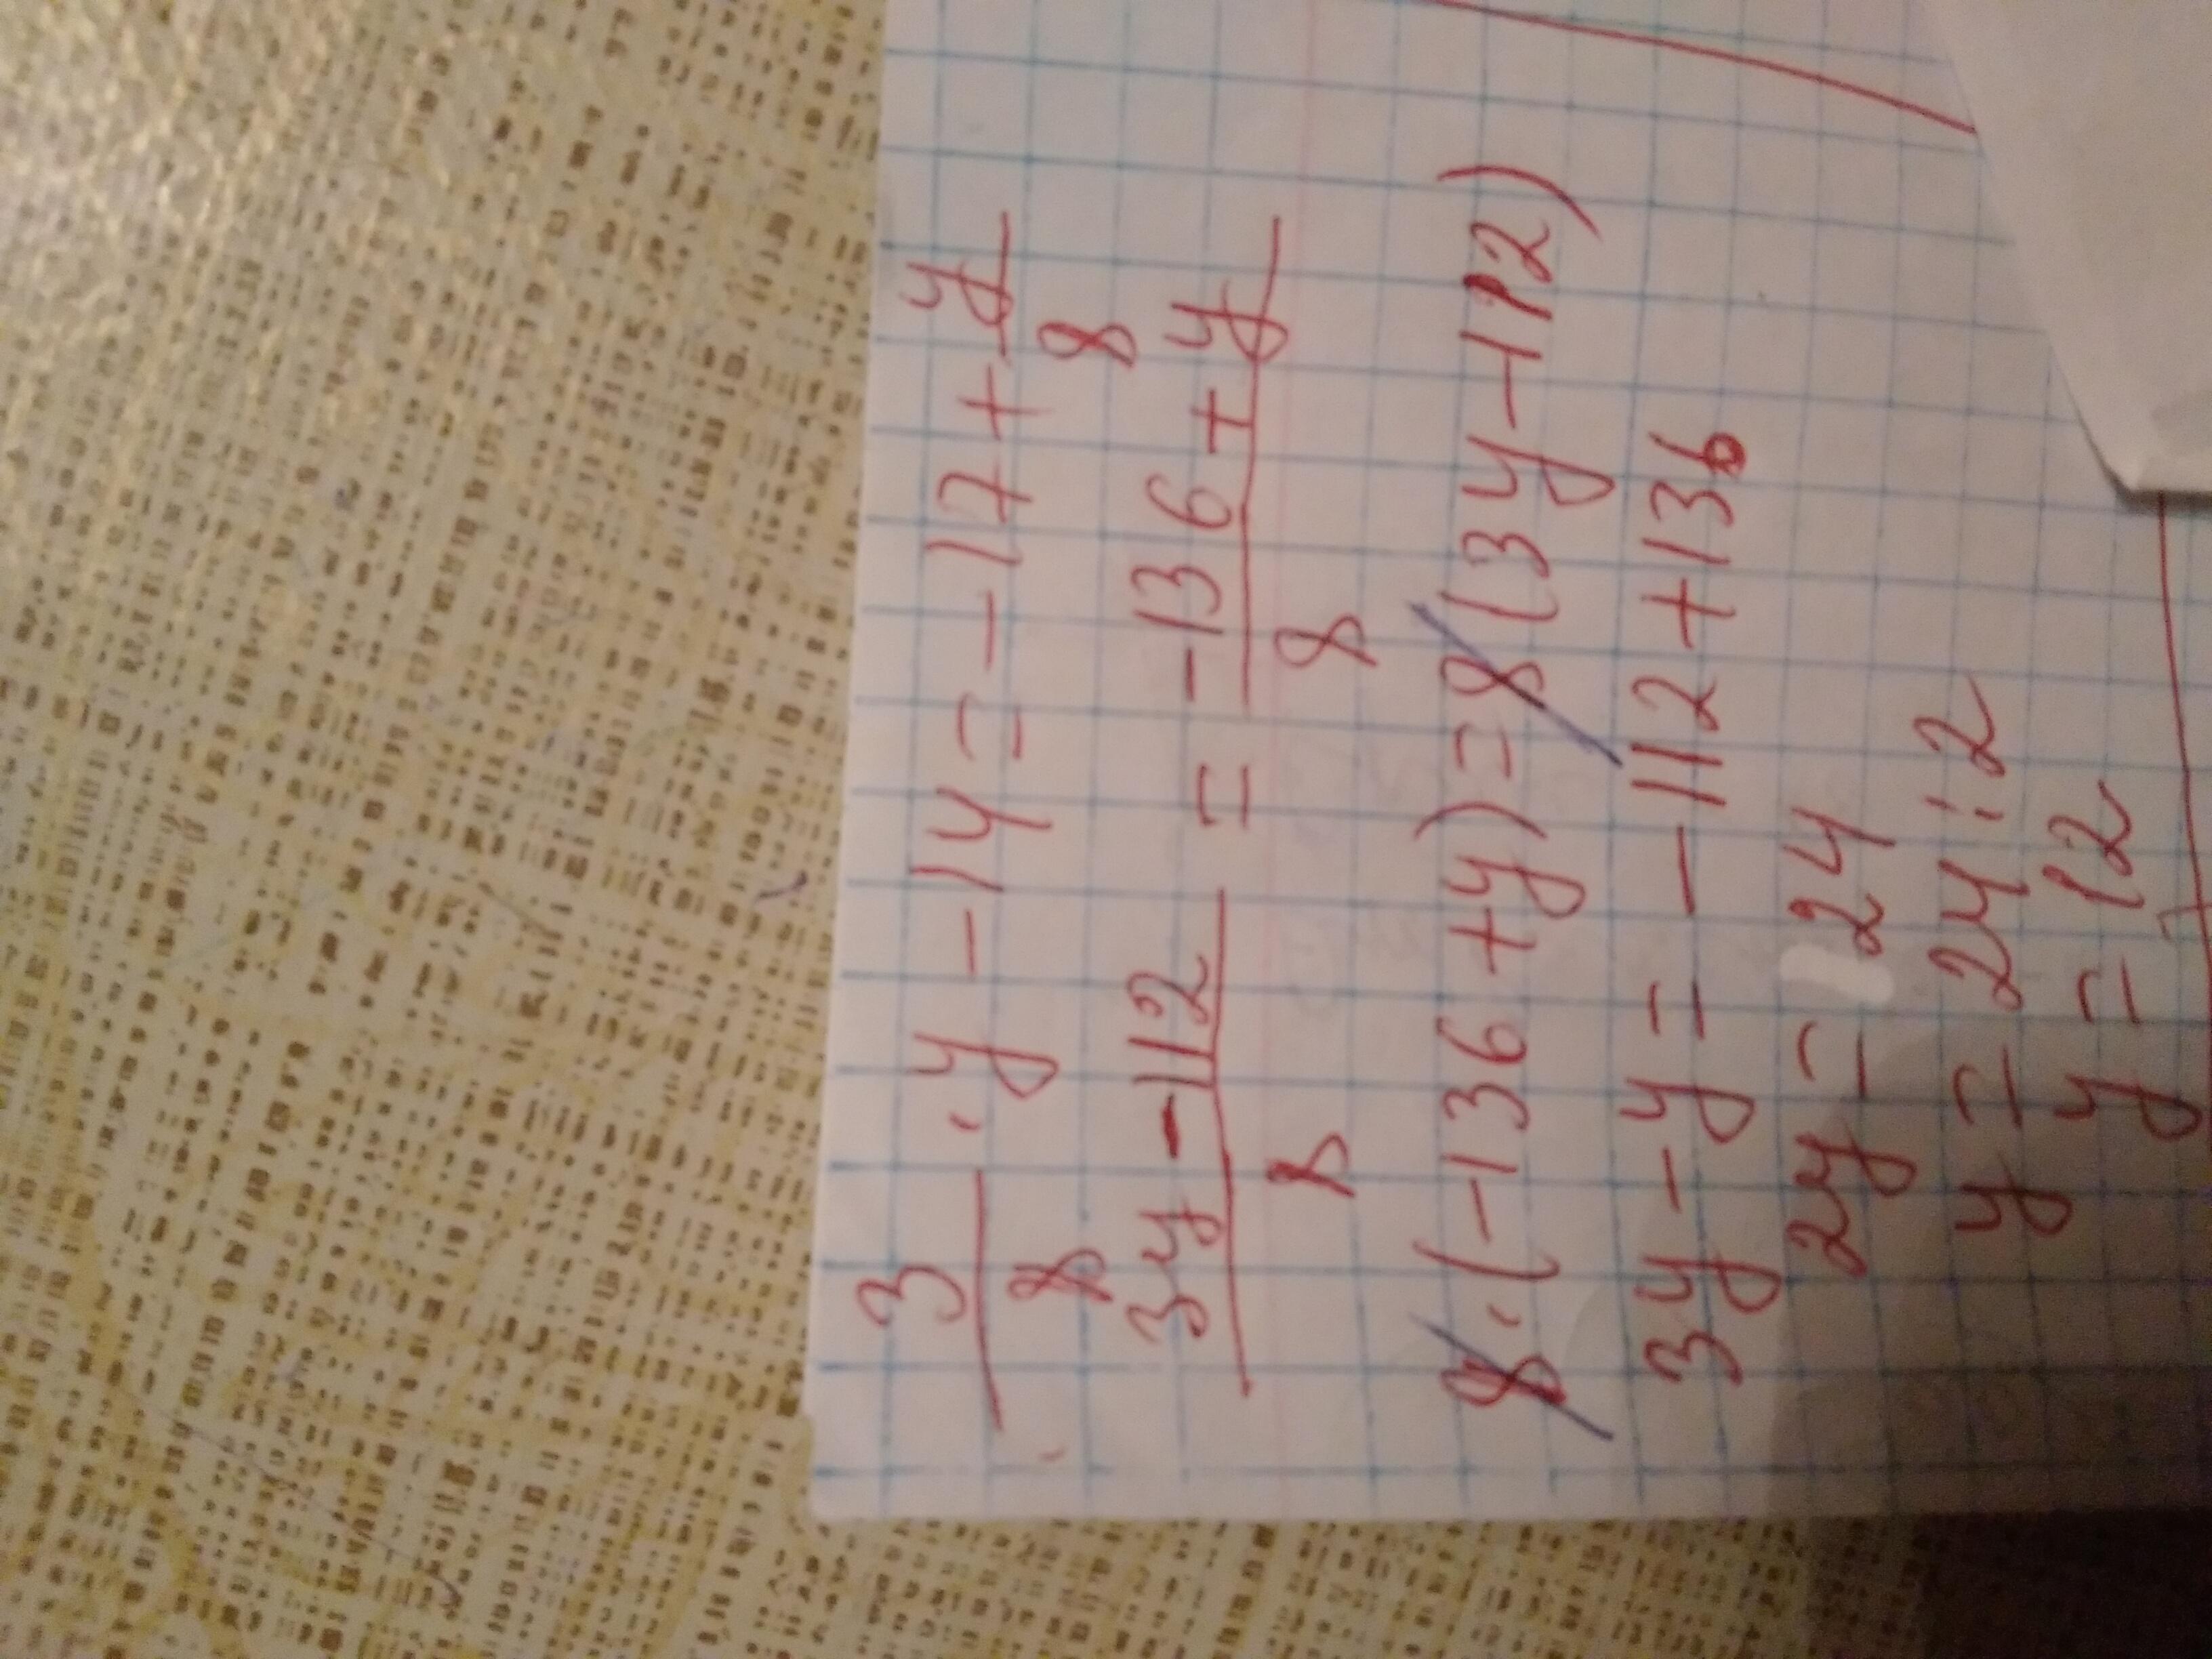 3/8 · y - 14 = -17 + y/8
3y - 112 / 8 = -136 + y / 8
8 · (-136 + y) = 8 (3y - 112)
3y - y = -112 + 136
2y = 24
y = 24 : 2
y = 12